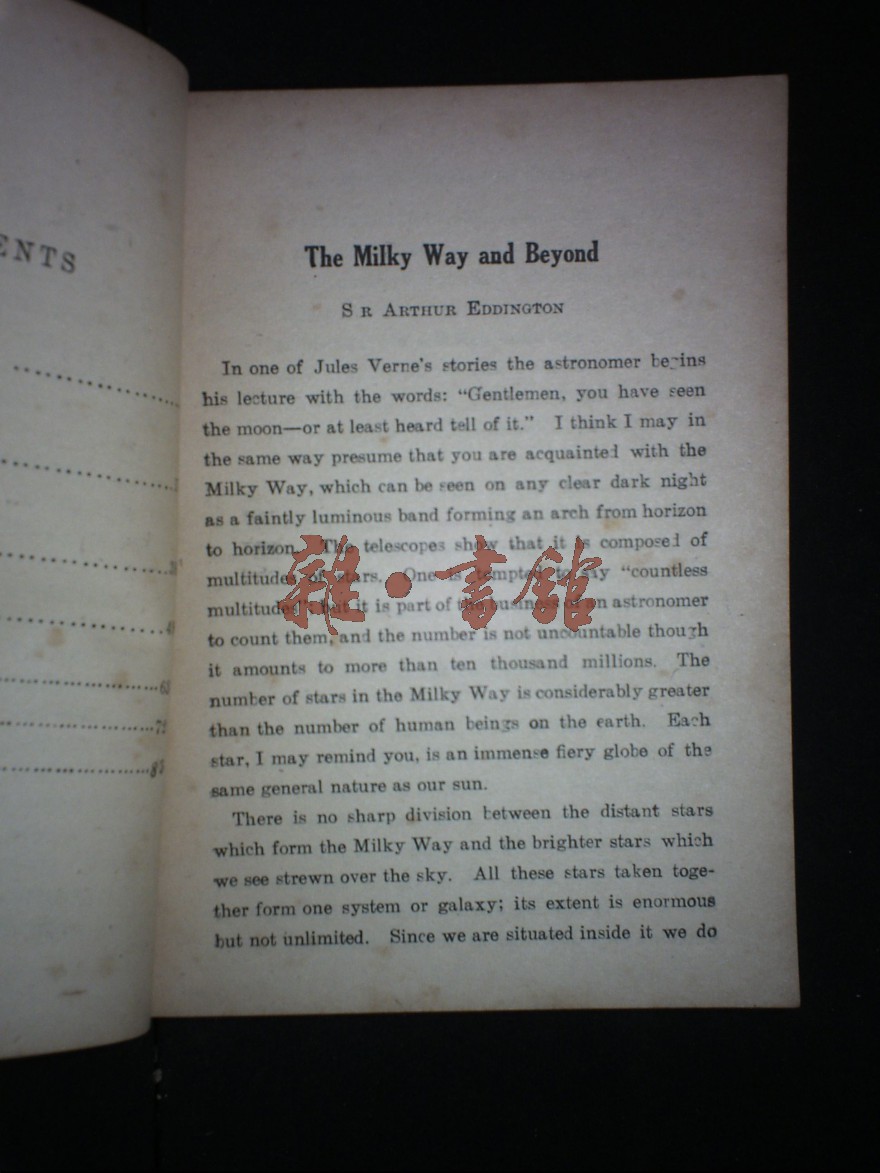 ENTS
39
49
63
72
The Milky Way and Beyond
S R ARTHUR EDDINGTON
In one of Jules Verne's stories the astronomer begins
his lecture with the words: "Gentlemen, you have seen
the moon—or at least heard tell of it." I think I may in
the same way presume that you are acquainted with the
Milky Way, which can be seen on any clear dark night
as a faintly luminous band forming an arch from horizon
to horizon. The telescopes show that it is composed of
multitudes of stars. One is tempted to say "countless
multitudes"; but it is part of the business of an astronomer
to count them, and the number is not uncountable though
it amounts to more than ten thousand millions. The
number of stars in the Milky Way is considerably greater
than the number of human beings on the earth. Each
star, I may remind you, is an immense fiery globe of the
same general nature as our sun.
There is no sharp division between the distant stars
which form the Milky Way and the brighter stars which
we see strewn over the sky. All these stars taken toge-
ther form one system or galaxy; its extent is enormous
but not unlimited. Since we are situated inside it we do
雜·書館